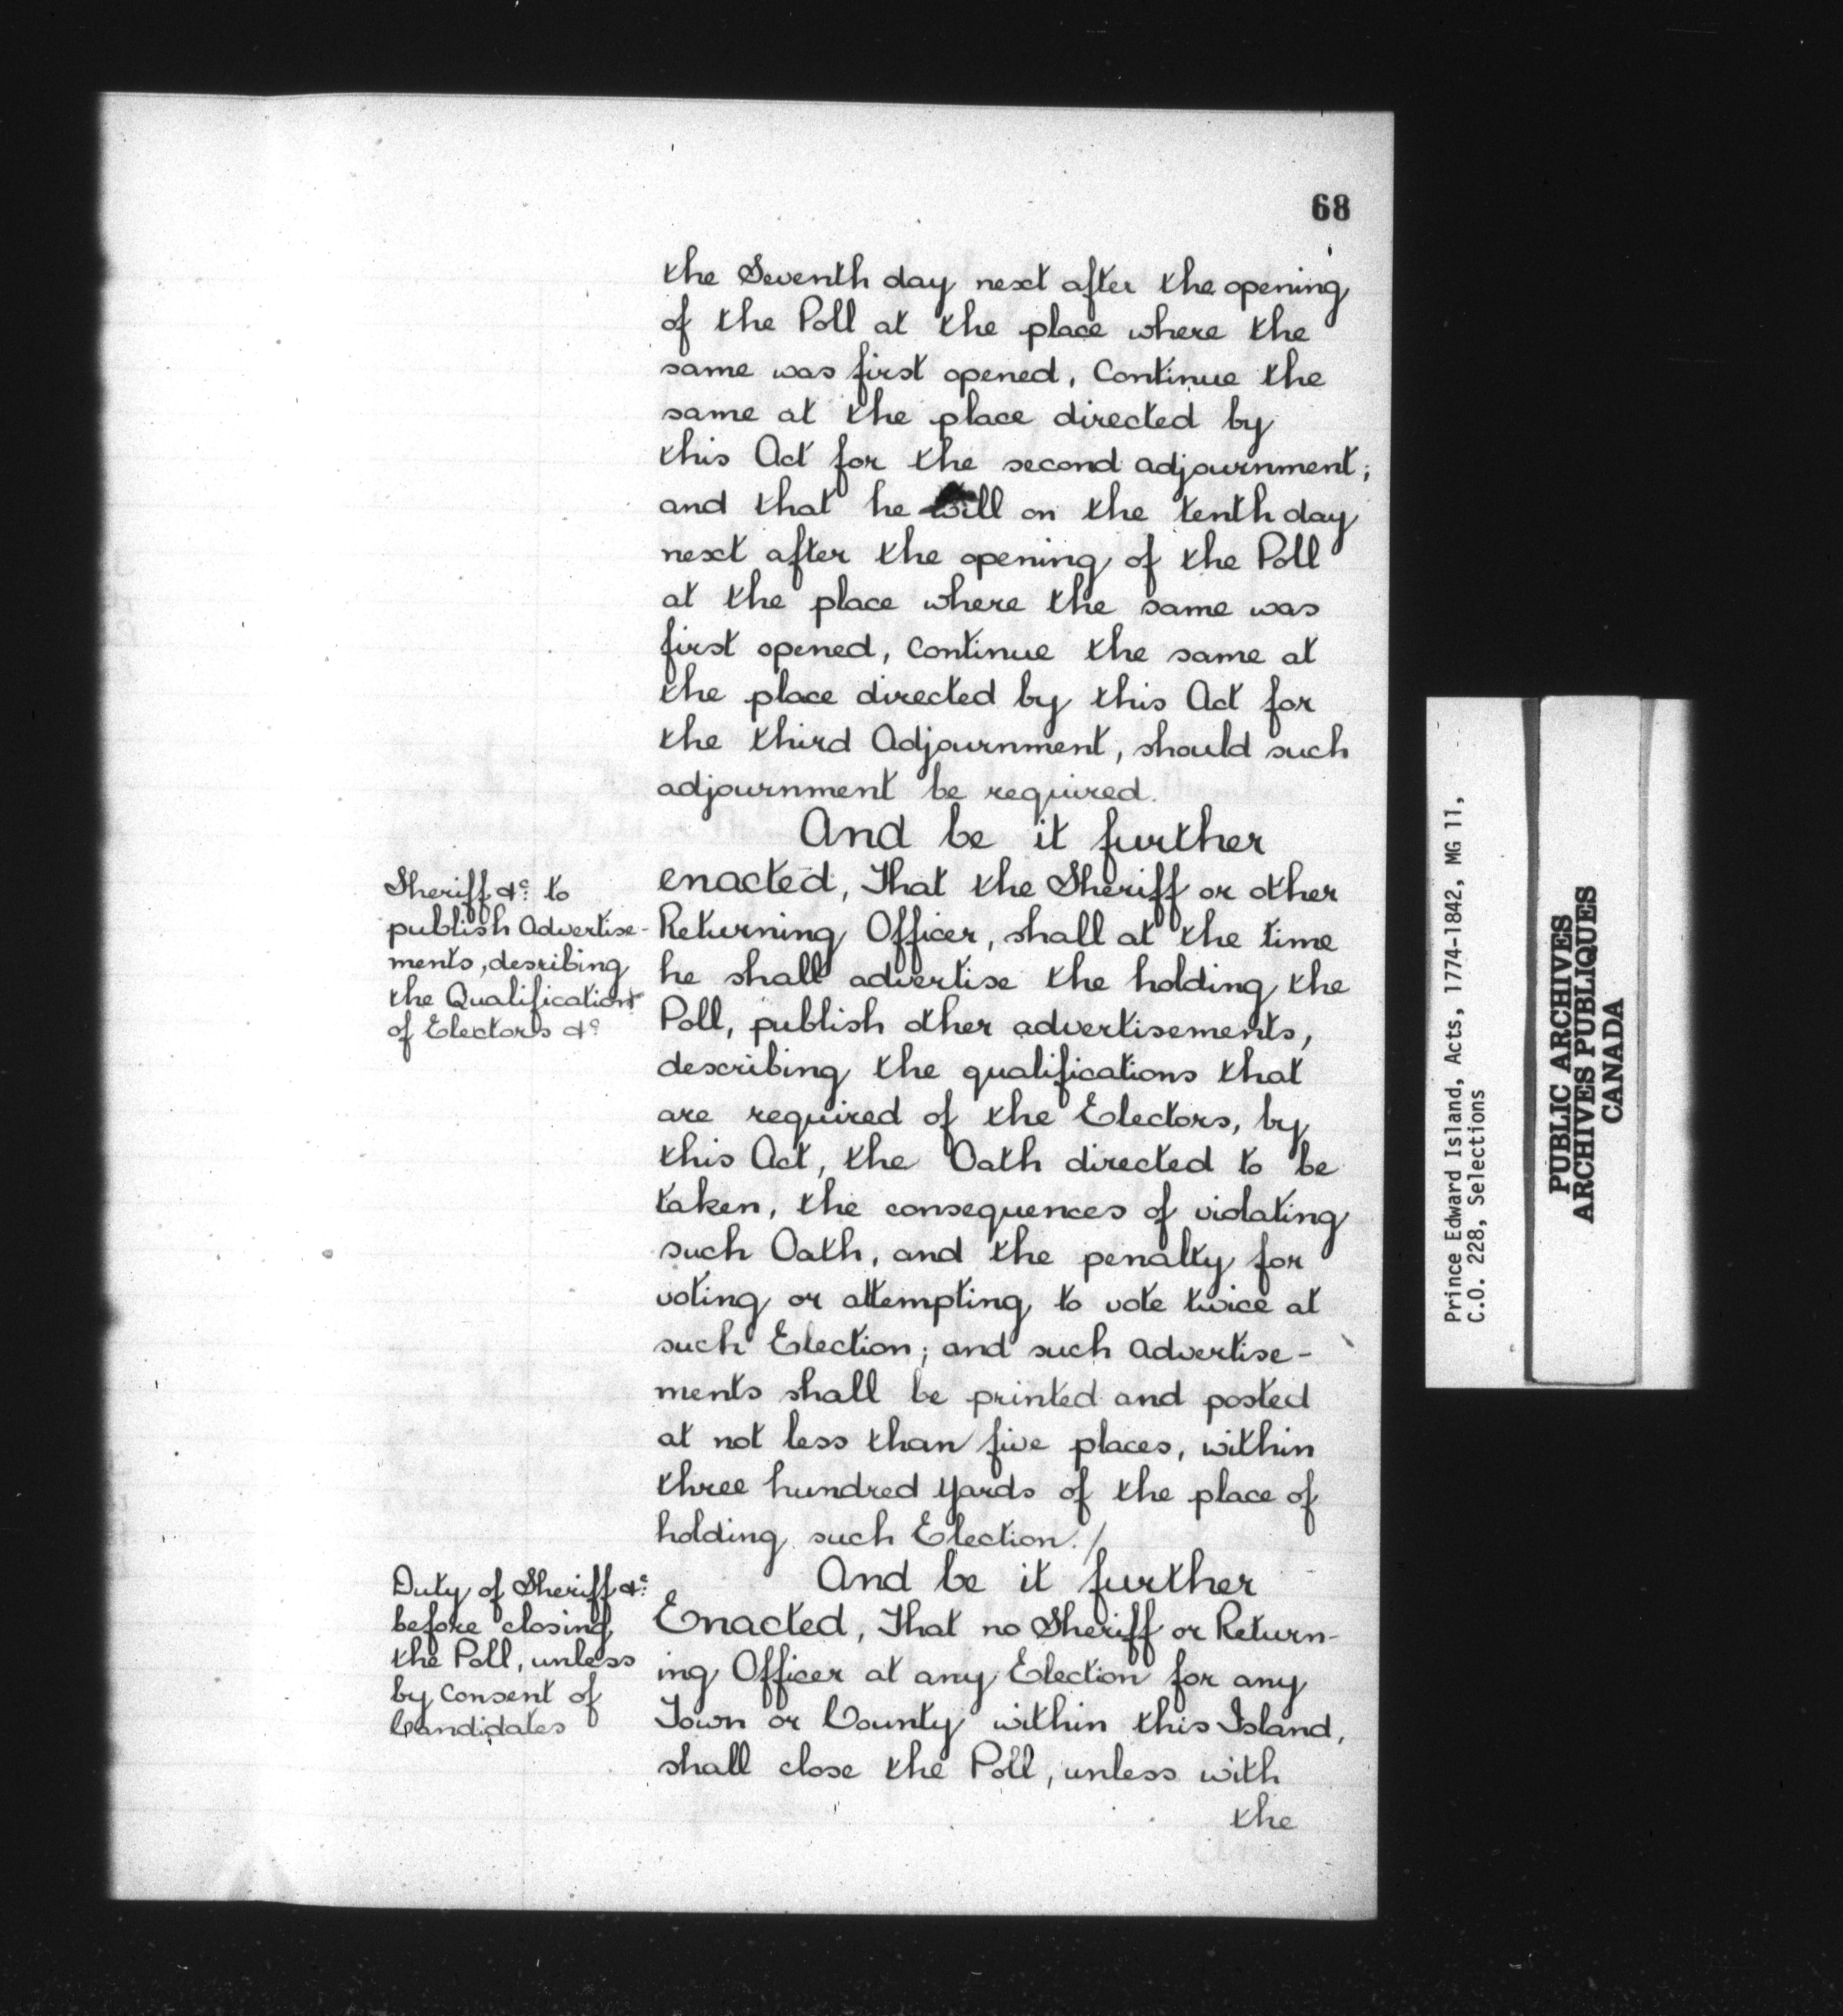 68
the Seventh day next after the opening
of the Poll at the place where the
same was first opened, Continue the
same at the place directed by
this Act for the second adjournment;
and that he will on the tenth day
next after the opening of the Poll
at the place where the same was
first opened, Continue the same at
the place directed by this Act for
the third Adjournment, should such
adjournment be required.
And be it further
enacted, That the Sheriff or other
Returning Officer, shall at the time
he shall advertise the holding the
Poll, publish other advertisements,
describing the qualifications that
are required of the Electors, by
this Act, the Oath directed to be
taken, the consequences of violating
such Oath, and the penalty for
voting or attempting to vote twice at
such Election; and such Advertise-
ments shall be printed and posted
at not less than five places, within
three hundred yards of the place of
holding such Election./
And be it further
Enacted, That no Sheriff or Return-
ing Officer at any Election for any
Town or County within this Island,
shall close the Poll, unless with
the
Sheriff &c. to
publish Advertise-
ments, desribing
the Qualifications
of Electors &c
Duty of Sheriff &c:
before closing
the Poll, unless
by Consent of
Candidates
Prince Edward Island, Acts, 1774-1842, MG 11,
C.O. 228, Selections
PUBLIC ARCHIVES
ARCHIVES PUBLIQUES
CANADA